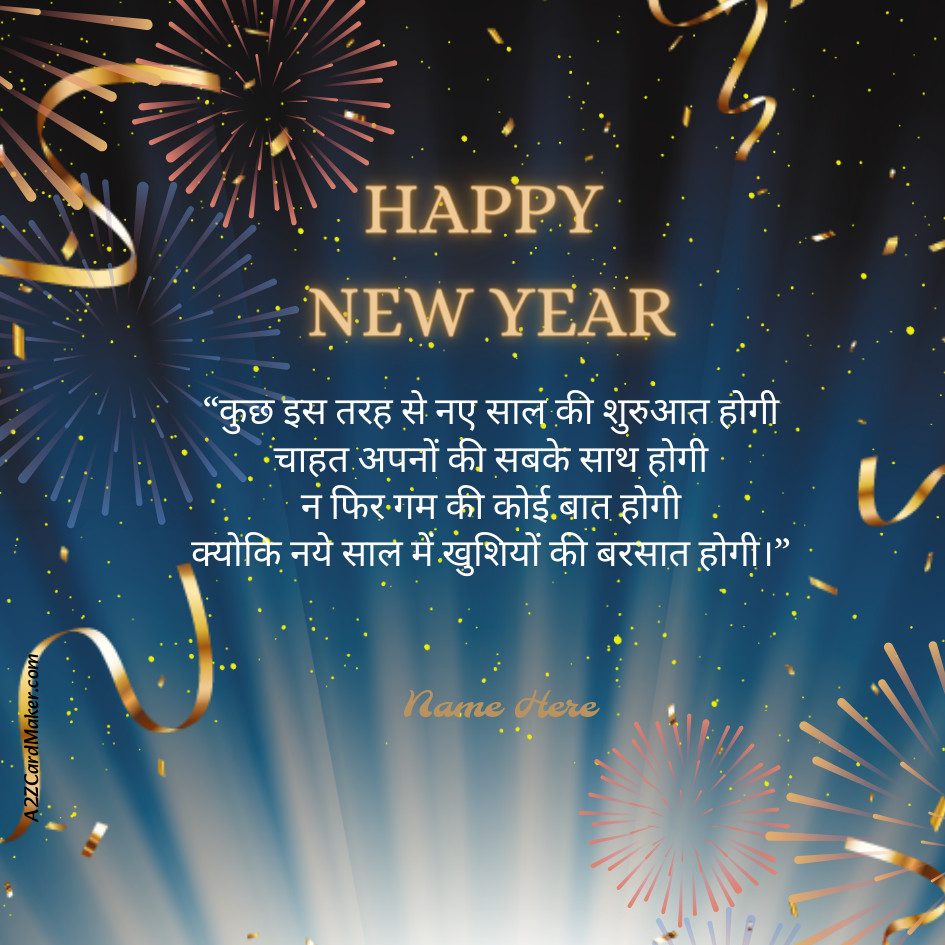 HAPPY
NEW YEAR
“कुछ इस तरह से नए साल की शुरुआत होगी
चाहत अपनों की सबके साथ होगी
न फिर गम की कोई बात होगी
क्योकि नये साल में खुशियों की बरसात होगी।”
Name Here
A2ZCardMaker.com